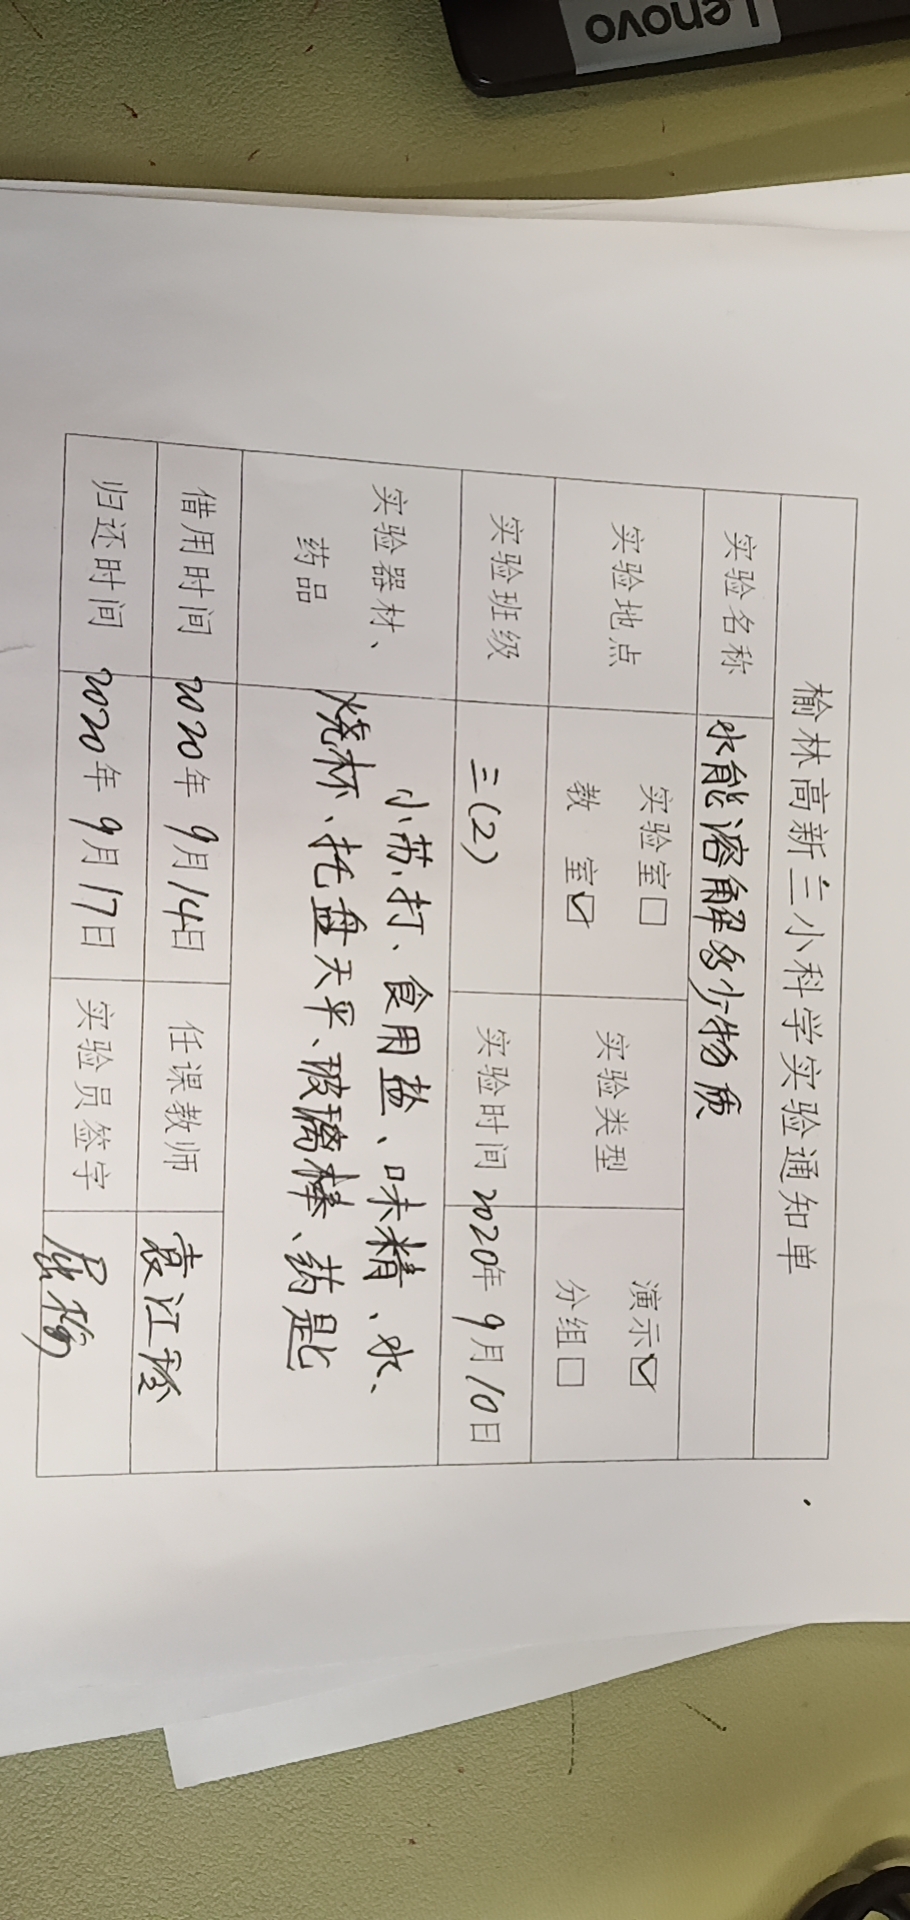 Lenovo
榆林高新三小科学实验通知单
实验名称 水能溶解多少物质
实验地点 实验室□ 教 室☑ 实验类型 演示☑ 分组□
实验班级 三(2) 实验时间 2020年9月10日
实验器材、药品 小苏打、食用盐、味精、水、
烧杯、托盘天平、玻璃棒、药匙
借用时间 2020年9月14日 任课教师
归还时间 2020年9月17日 实验员签字